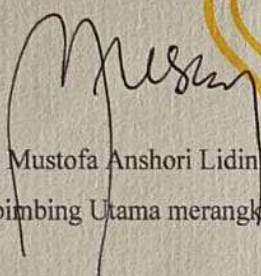 Mustofa Anshori Lidin
bimbing Utama merangk